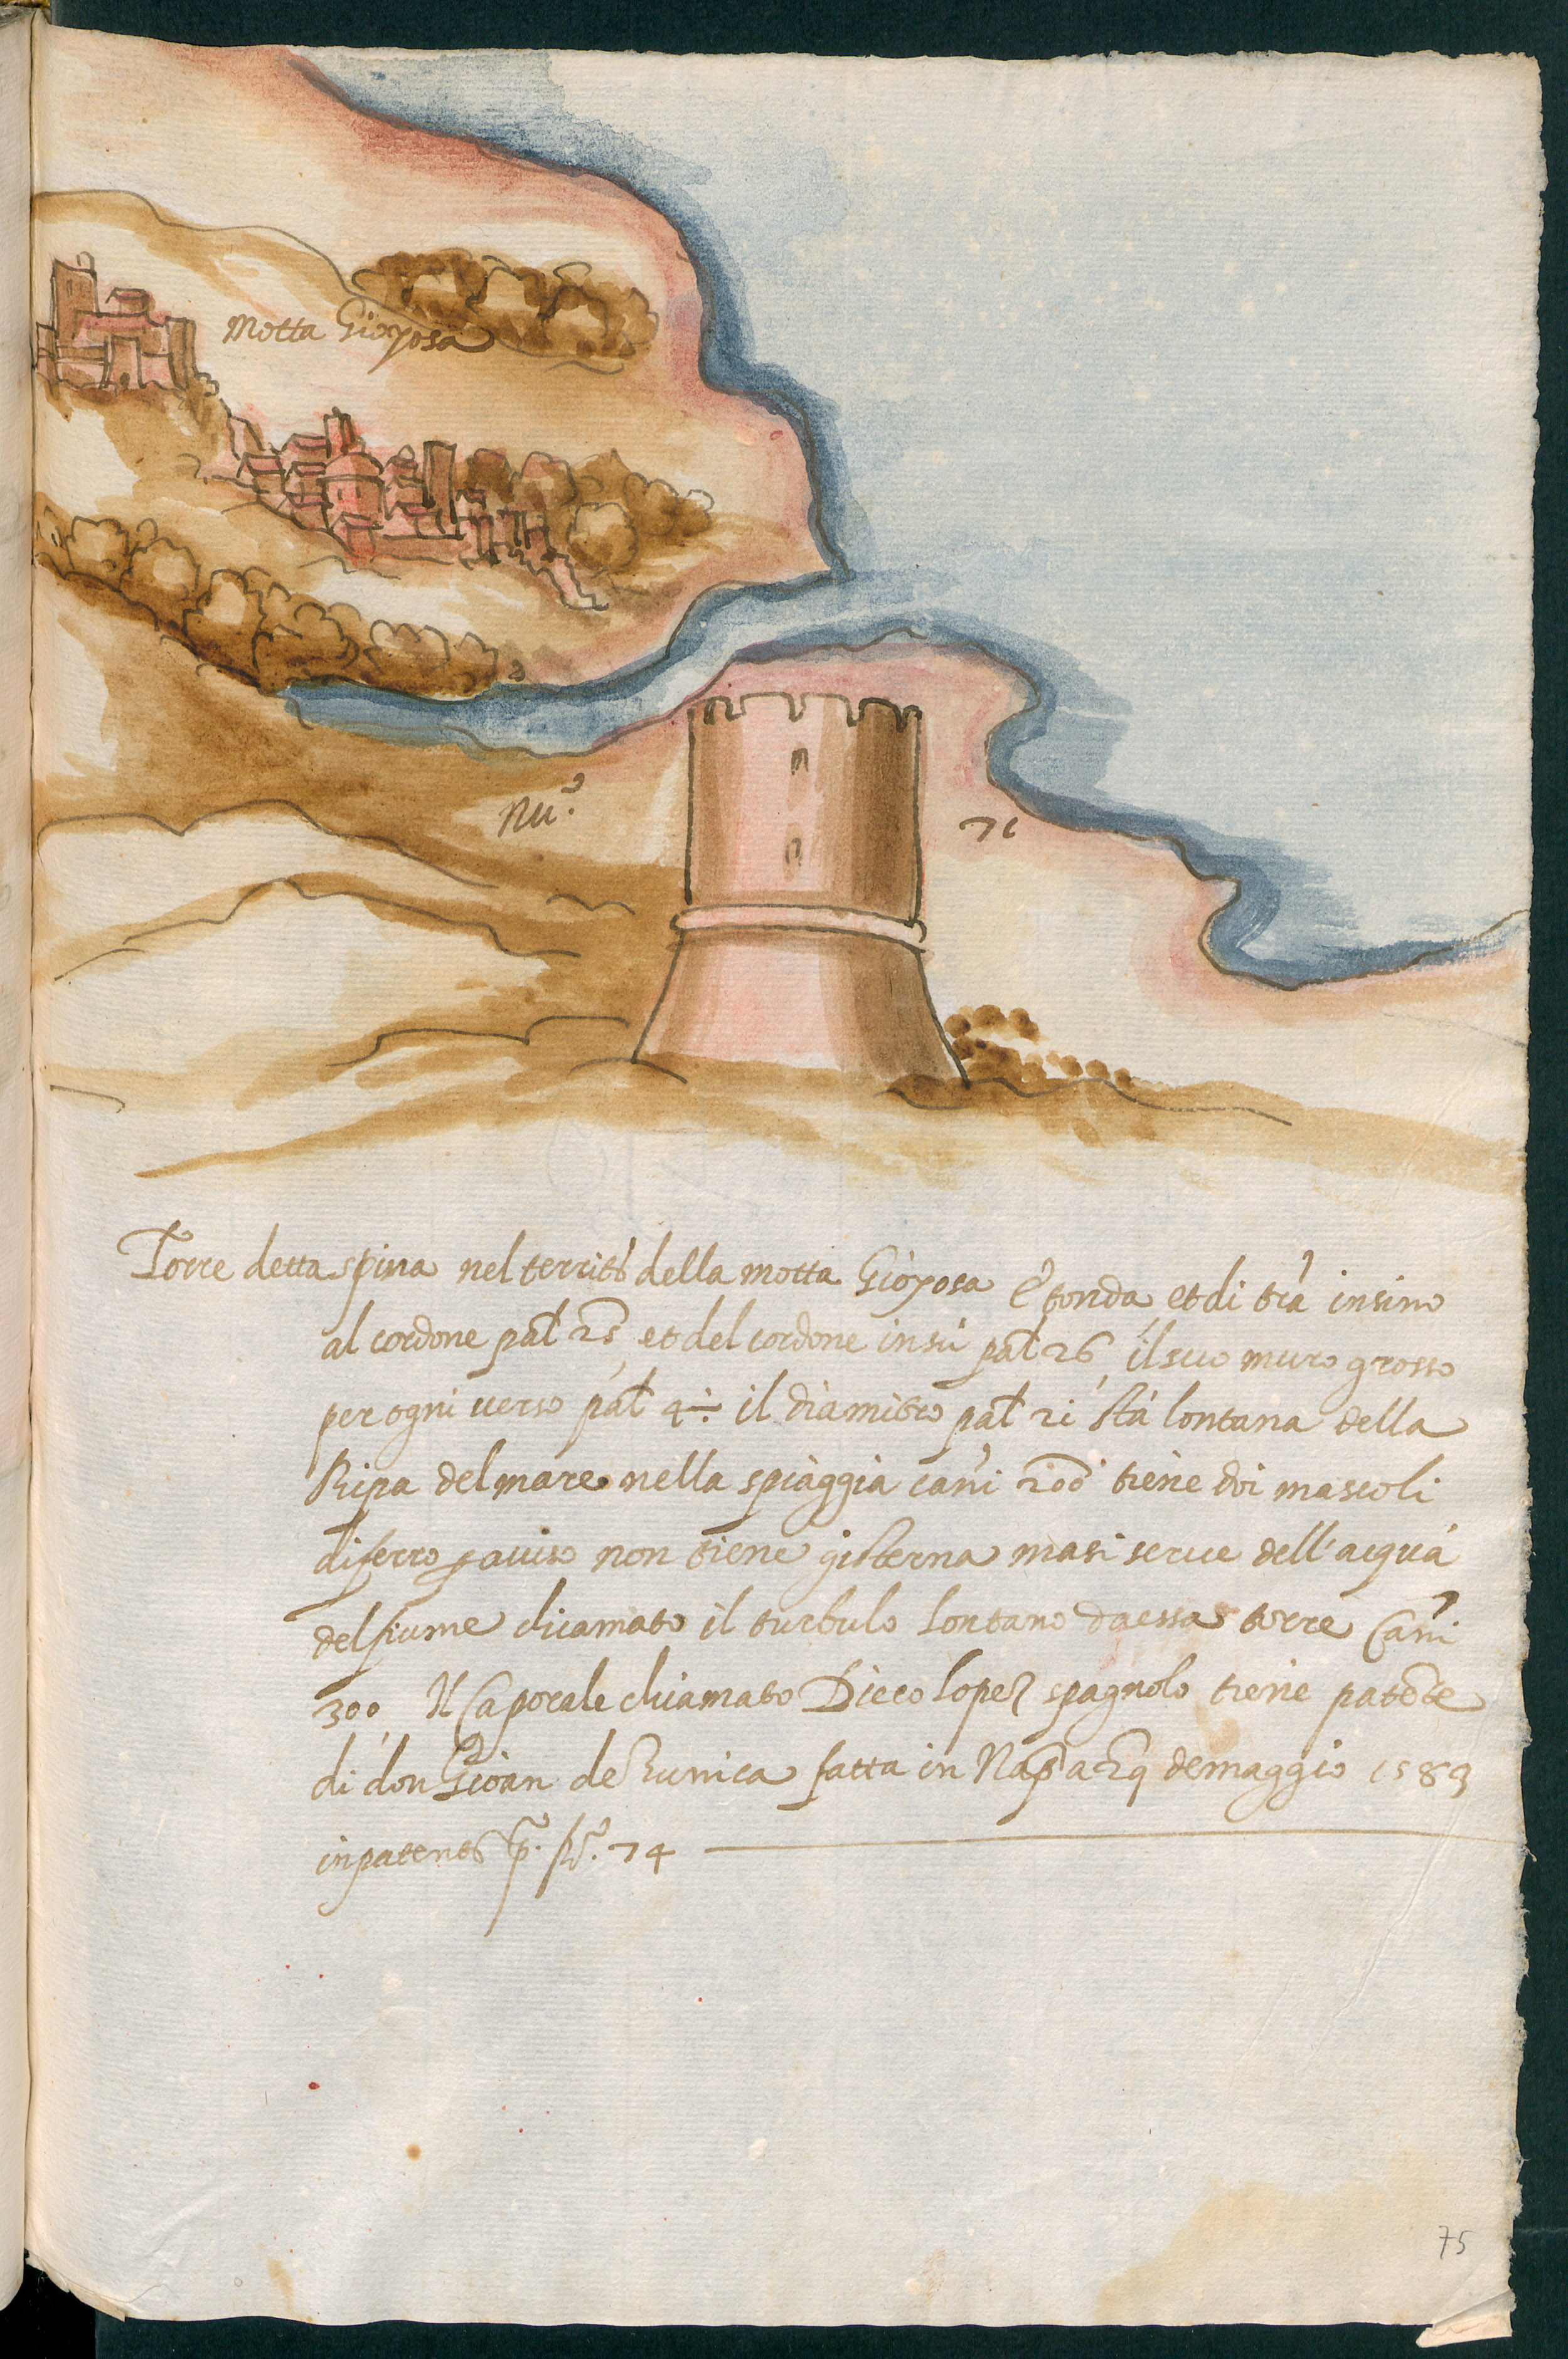 Motta Gioyosa
Nu.º 71
Torre detta spina nel territ.º della motta Gioyosa è tonda, et di trà insino
al cordone pal 25, et del cordone insù pal 26, il suo muro grosso
per ogni verso pal 4 il diamitro pal 21 stà lontana della
Ripa del mare nella spiaggia canni 200 tiene doi mascoli
di ferro p aviso non tiene gisterna ma si serve dell'acqua
del fiume chiamato il turbulo lontano da essa torre Canni
300, Il Caporale chiamato Dieco lopez spagnolo tiene patete
di don Gioan de Zunica fatta in Nap a 29 de maggio 1583
in patent p.º 74
75